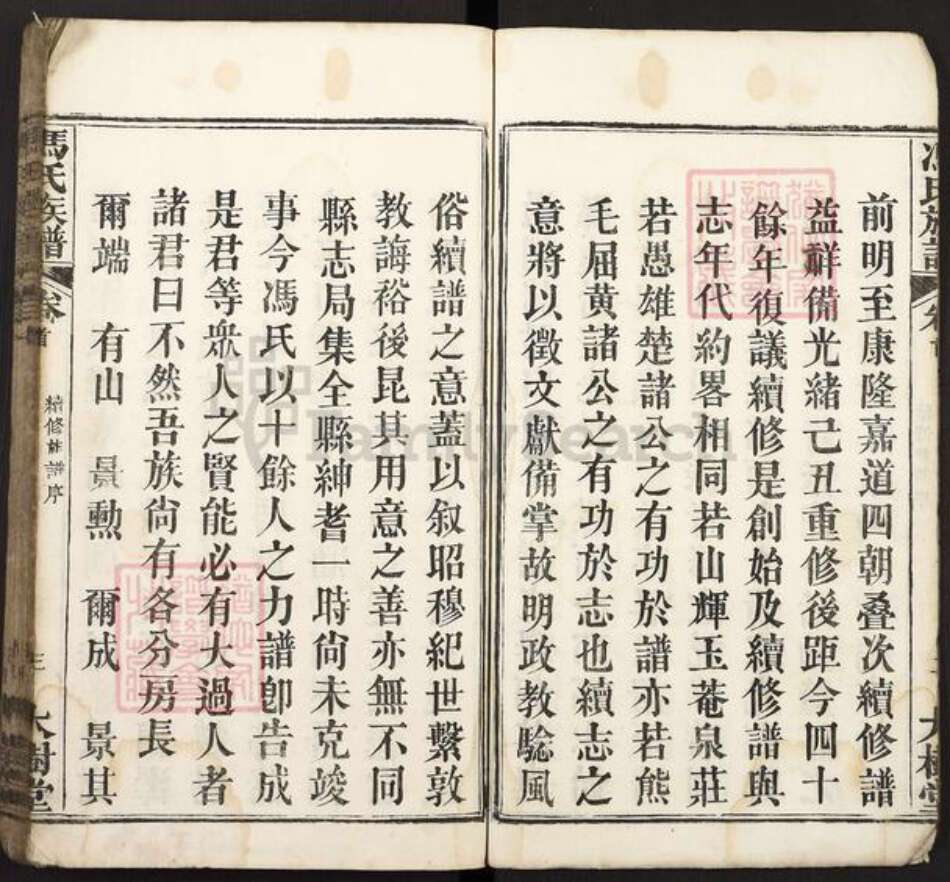 前明至康隆嘉道四朝叠次續修譜
益詳備光緒己丑重修後距今四十
餘年復議續修是創始及續修譜與
志年代約畧相同若山輝玉菴泉莊
若愚雄楚諸公之有功於譜亦若熊
毛屈黃諸公之有功於志也續志之
意將以徵文獻備掌故明政教騐風
俗續譜之意蓋以叙昭穆紀世繫敦
教誨裕後昆其用意之善亦無不同
縣志局集全縣紳耆一時尙未克竣
事今馮氏以十餘人之力譜卽告成
是君等衆人之賢能必有大過人者
諸君曰不然吾族尙有各分房長
爾端 有山 景勲 爾成 景其
馮氏族譜 卷首 續修族譜序 三 大樹堂